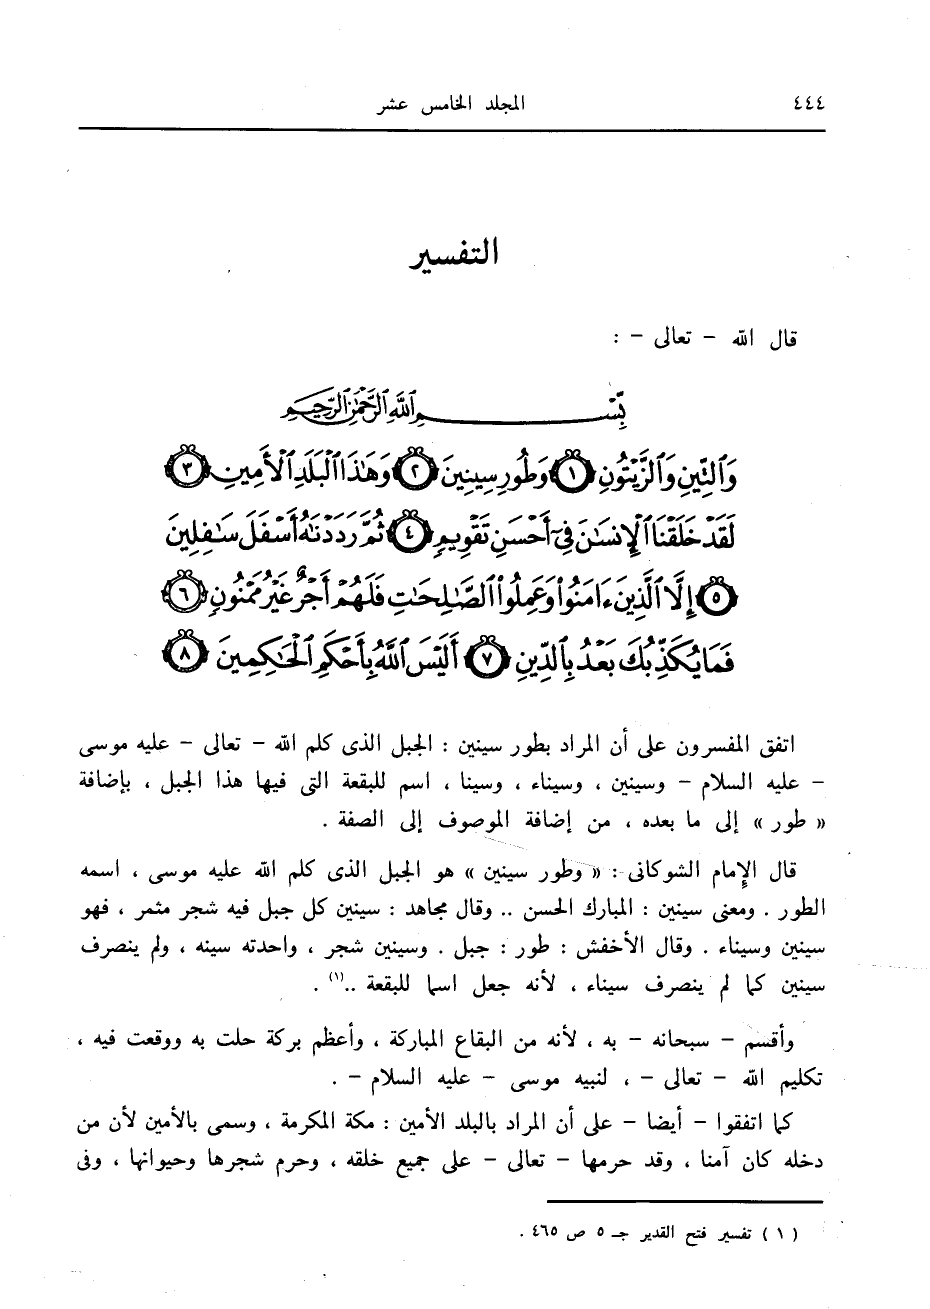 ٤٤٤ المجلد الخامس عشر
التفسير
قال الله – تعالى – :
بِسْمِ ٱللَّهِ ٱلرَّحْمَٰنِ ٱلرَّحِيمِ
وَٱلتِّينِ وَٱلزَّيْتُونِ ١ وَطُورِ سِينِينَ ٢ وَهَٰذَا ٱلْبَلَدِ ٱلْأَمِينِ ٣
لَقَدْ خَلَقْنَا ٱلْإِنسَٰنَ فِىٓ أَحْسَنِ تَقْوِيمٍ ٤ ثُمَّ رَدَدْنَٰهُ أَسْفَلَ سَٰفِلِينَ
٥ إِلَّا ٱلَّذِينَ ءَامَنُوا۟ وَعَمِلُوا۟ ٱلصَّٰلِحَٰتِ فَلَهُمْ أَجْرٌ غَيْرُ مَمْنُونٍ ٦
فَمَا يُكَذِّبُكَ بَعْدُ بِٱلدِّينِ ٧ أَلَيْسَ ٱللَّهُ بِأَحْكَمِ ٱلْحَٰكِمِينَ ٨
اتفق المفسرون على أن المراد بطور سينين : الجبل الذى كلم الله – تعالى – عليه موسى
– عليه السلام – وسينين ، وسيناء ، وسينا ، اسم للبقعة التى فيها هذا الجبل ، بإضافة
« طور » إلى ما بعده ، من إضافة الموصوف إلى الصفة .
قال الإمام الشوكانى : « وطور سينين » هو الجبل الذى كلم الله عليه موسى ، اسمه
الطور . ومعنى سينين : المبارك الحسن .. وقال مجاهد : سينين كل جبل فيه شجر مثمر ، فهو
سينين وسيناء . وقال الأخفش : طور : جبل . وسينين شجر ، واحدته سينه ، ولم ينصرف
سينين كما لم ينصرف سيناء ، لأنه جعل اسما للبقعة ..(١) .
وأقسم – سبحانه – به ، لأنه من البقاع المباركة ، وأعظم بركة حلت به ووقعت فيه ،
تكليم الله – تعالى – ، لنبيه موسى – عليه السلام – .
كما اتفقوا – أيضا – على أن المراد بالبلد الأمين : مكة المكرمة ، وسمى بالأمين لأن من
دخله كان آمنا ، وقد حرمها – تعالى – على جميع خلقه ، وحرم شجرها وحيوانها ، وفى
( ١ ) تفسير فتح القدير جـ ٥ ص ٤٦٥ .